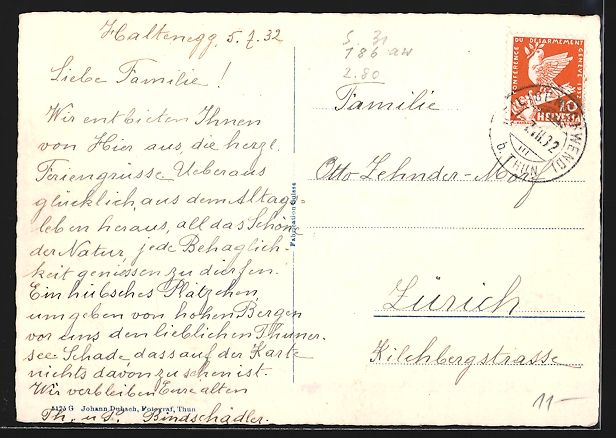 Haltenegg, 5.7.32
Liebe Familie!
Wir entbieten Ihnen
von Hier aus, die herzl.
Feriengrüsse Ueberaus
glücklich, aus dem Alltags-
leben heraus, all das Schöne
der Natur, jede Behaglich-
keit geniessen zu dürfen.
Ein hübsches Plätzchen,
umgeben von hohen Bergen
vor uns den lieblichen Thuner-
see Schade dass auf der Karte
nichts davon zu sehen ist.
Wir verbleiben Eure alten
Th. u. S. Bindschädler.
4124 G Johann Dubach, Fotograf, Thun
Fabrication Suisse
S. 31
186 aw
2.80
CONFERENCE DU DESARMEMENT GENEVE 1932
10
HELVETIA
b. THUN
Familie
Otto Zehnder-Morf
Zürich
Kilchbergstrasse
11-